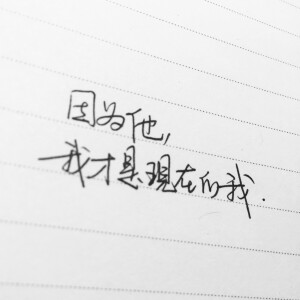 因为他,
我才是现在的我.